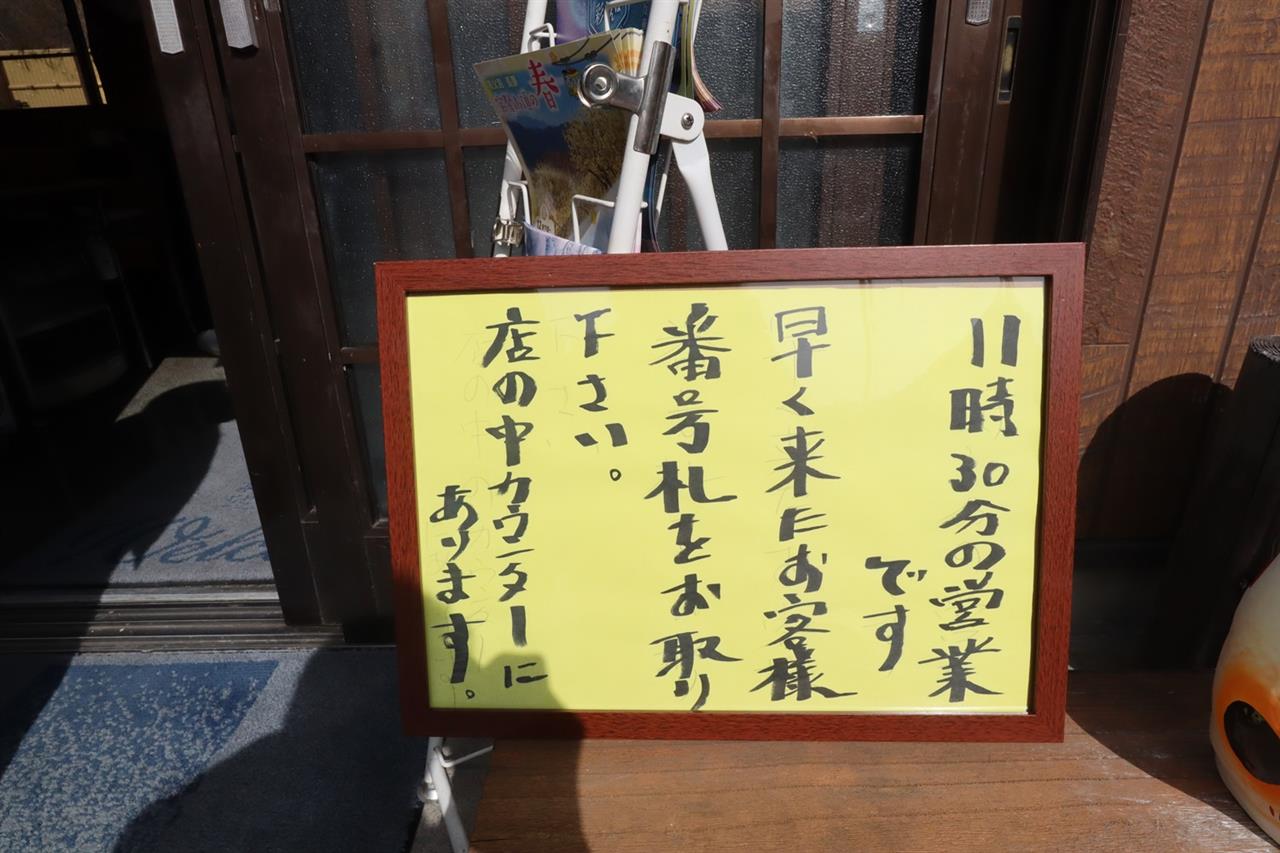 11時30分の営業
です
早く来たお客様
番号札をお取り
下さい。
店の中カウンターに
あります。
春